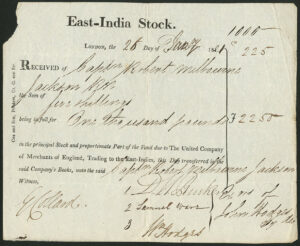 East-India Stock.
1000
London, the 26 Day of 225
Received of Captn Robert Welbourne
Jackson
the Sum of
five shillings
being in full for One thousand pounds £2250
in the principal Stock and proportionate Part of the Fund due to The United Company
of Merchants of England, Trading to the East-Indies, this Day transferred in the
said Company's Books, unto the said Captn Robert Welbourne Jackson
Witness,
1
2 Samuel Ware
of
3 Wm Hodges
John Hodges